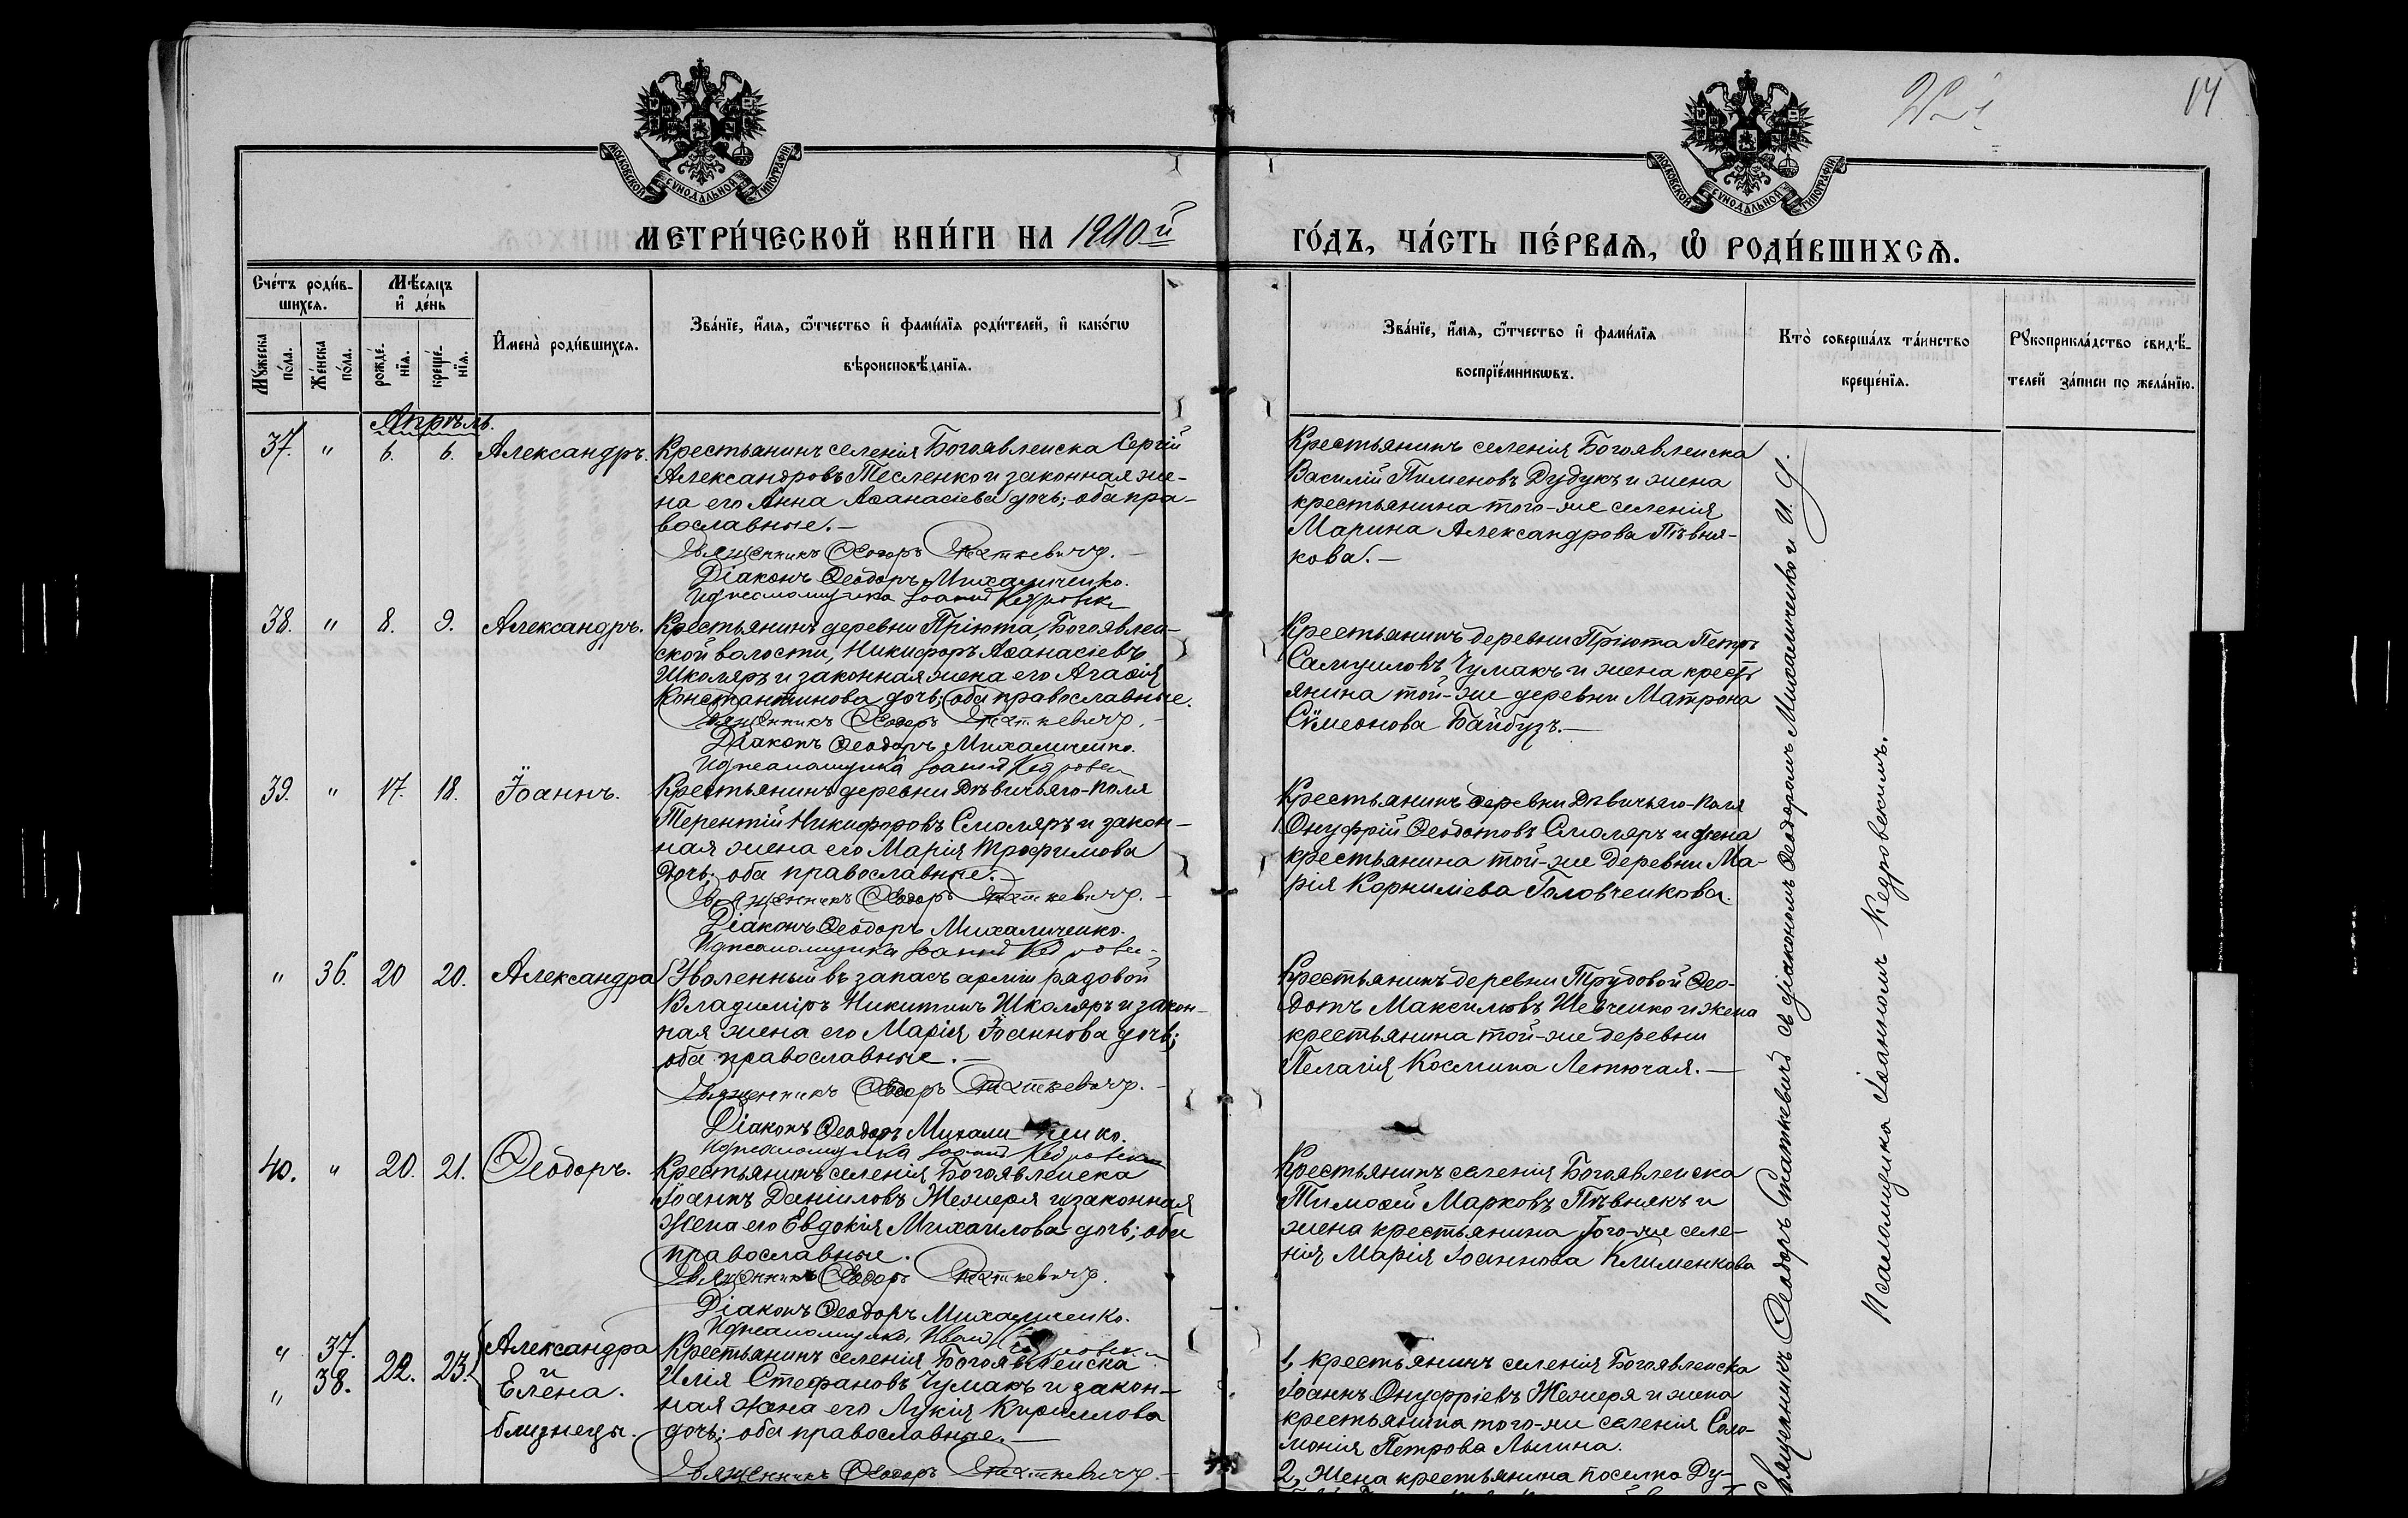 14
МОСКОВСКОЙ СУНОДАЛЬНОЙ ТИПОГРАФІИ
МОСКОВСКОЙ СУНОДАЛЬНОЙ ТИПОГРАФІИ
МЕТРИ́ЧЕСКОЙ КНИ́ГИ НА 1900й
ГО́ДЪ, ЧА́СТЬ ПЕ́РВАѦ, Ѡ РОДИ́ВШИХСѦ.
Сче́тъ роди́в-
шихсѧ.
Мѣ́сѧцъ
и҆ де́нь
Му́жеска
по́ла.
Же́нска
по́ла.
рожде́-
нїѧ.
креще́-
нїѧ.
И҆мена̀ роди́вшихсѧ.
Зва́нїе, и҆́мѧ, ѻ҆́тчество и҆ фами́лїѧ роди́телей, и҆ како́гѡ
вѣроисповѣ́данїѧ.
Зва́нїе, и҆́мѧ, ѻ҆́тчество и҆ фами́лїѧ
воспрїе́мникѡвъ.
Кто̀ соверша́лъ та́инство
креще́нїѧ.
Рꙋкоприкла́дство свидѣ́-
телей за́писи по жела́нїю.
Апрѣль.
37. " 6. 6. Александръ.
Крестьянинъ селенія Богоявленска Сергій
Александровъ Тесленко и законная же-
на его Анна Аѳанасіева дочь; оба пра-
вославные.-
Священникъ Ѳеодоръ Статкевичъ.-
Діаконъ Ѳеодоръ Михаличенко.
И д псаломщика Іоаннъ Кедровск
Крестьянинъ селенія Богоявленска
Василій Пименовъ Дудукъ и жена
крестьянина того-же селенія
Марина Александрова Пѣвня-
кова.-
38. " 8. 9. Александръ.
Крестьянинъ деревни Пріюта, Богоявлен-
ской волости, Никифоръ Аѳанасіевъ
Школяръ и законная жена его Агаѳія
Константинова дочь; оба православные.
Священникъ Ѳеодоръ Статкевичъ.-
Діаконъ Ѳеодоръ Михаличенко.
И д псаломщика Іоаннъ Кедровск
Крестьянинъ деревни Пріюта Петръ
Самуиловъ Чумакъ и жена кресть
янина той-же деревни Матрона
Сѵмеонова Байбузъ.-
39. " 17. 18. Іоаннъ.
Крестьянинъ деревни Дѣвичьяго-Поля
Терентій Никифоровъ Смоляръ и закон-
ная жена его Марія Трофимова
дочь; оба православные.-
Священникъ Ѳеодоръ Статкевичъ.-
Діаконъ Ѳеодоръ Михаличенко.
И д псаломщика Іоаннъ Кедровск
Крестьянинъ деревни Дѣвичьяго-Поля
Онуфрій Ѳеодотовъ Смоляръ и жена
крестьянина той-же деревни Ма-
рія Корниліева Головченкова.
" 36. 20 20. Александра
Уволенный въ запасъ арміи рядовой
Владиміръ Никитинъ Школяръ и закон-
ная жена его Марія Іоаннова дочь;
оба православные.-
Священникъ Ѳеодоръ Статкевичъ.-
Діаконъ Ѳеодоръ Михаличенко.
И д псаломщика Іоаннъ Кедровск
Крестьянинъ деревни Трудовой Ѳео-
дотъ Максимовъ Шевченко и жена
крестьянина той-же деревни
Пелагія Космина Летючая.-
40. " 20. 21. Ѳеодоръ.
Крестьянинъ селенія Богоявленска
Іоаннъ Даніиловъ Жежеря и законная
жена его Евдокія Михаилова дочь; оба
православные.
Священникъ Ѳеодоръ Статкевичъ.
Діаконъ Ѳеодоръ Михаличенко.
И д псаломщика, Иван
Крестьянинъ селенія Богоявленска
Тимоѳей Марковъ Пѣвнякъ и
жена крестьянина того-же селе-
нія Марія Іоаннова Клименкова
" 37.
" 38. 22. 23. Александра
и
Елена.
близнецы.
Крестьянинъ селенія Богоявленска
Илія Стефановъ Чумакъ и закон-
ная жена его Лукія Кириллова
дочь; оба православные.-
Священникъ Ѳеодоръ Статкевичъ.-
1, крестьянинъ селенія Богоявленска
Іоаннъ Онуфріевъ Жежеря и жена
крестьянина того-же селенія Соло-
монія Петрова Лысина.
2, Жена крестьянина поселка Ду-
Священникъ Ѳеодоръ Статкевичъ съ діакономъ Ѳеодоромъ Михаличенко и И. д.
псаломщика Іоанномъ Кедровскимъ.-